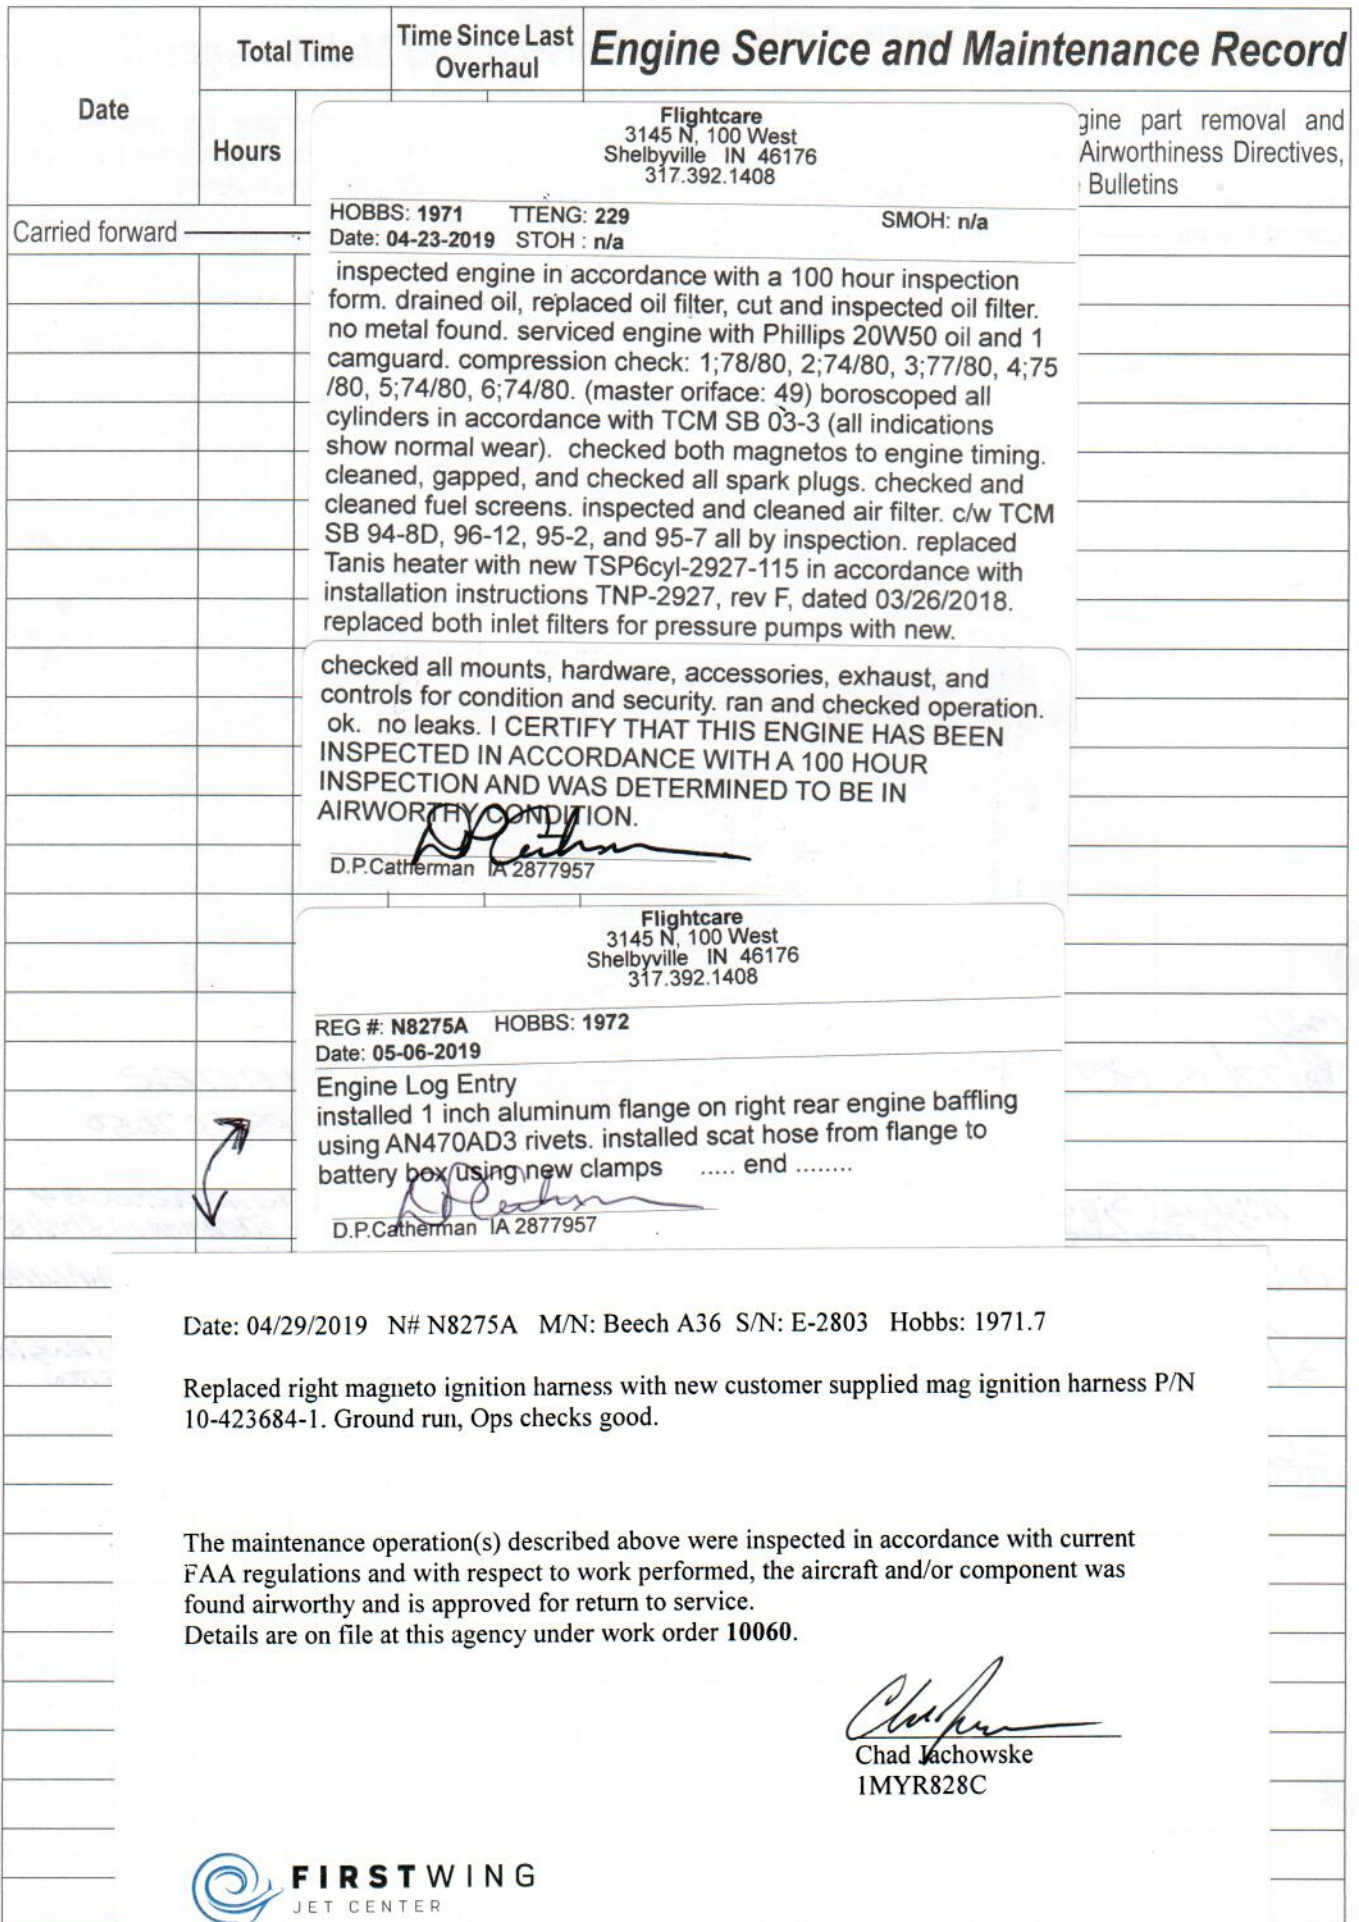 Date
Total Time
Time Since Last
Overhaul
Engine Service and Maintenance Record
Hours
gine part removal and
Airworthiness Directives,
Bulletins
Carried forward
Flightcare
3145 N, 100 West
Shelbyville IN 46176
317.392.1408
HOBBS: 1971 TTENG: 229 SMOH: n/a
Date: 04-23-2019 STOH : n/a
inspected engine in accordance with a 100 hour inspection
form. drained oil, replaced oil filter, cut and inspected oil filter.
no metal found. serviced engine with Phillips 20W50 oil and 1
camguard. compression check: 1;78/80, 2;74/80, 3;77/80, 4;75
/80, 5;74/80, 6;74/80. (master oriface: 49) boroscoped all
cylinders in accordance with TCM SB 03-3 (all indications
show normal wear). checked both magnetos to engine timing.
cleaned, gapped, and checked all spark plugs. checked and
cleaned fuel screens. inspected and cleaned air filter. c/w TCM
SB 94-8D, 96-12, 95-2, and 95-7 all by inspection. replaced
Tanis heater with new TSP6cyl-2927-115 in accordance with
installation instructions TNP-2927, rev F, dated 03/26/2018.
replaced both inlet filters for pressure pumps with new.
checked all mounts, hardware, accessories, exhaust, and
controls for condition and security. ran and checked operation.
ok. no leaks. I CERTIFY THAT THIS ENGINE HAS BEEN
INSPECTED IN ACCORDANCE WITH A 100 HOUR
INSPECTION AND WAS DETERMINED TO BE IN
AIRWORTHY CONDITION.
D.P.Catherman IA 2877957
Flightcare
3145 N, 100 West
Shelbyville IN 46176
317.392.1408
REG #: N8275A HOBBS: 1972
Date: 05-06-2019
Engine Log Entry
installed 1 inch aluminum flange on right rear engine baffling
using AN470AD3 rivets. installed scat hose from flange to
battery box using new clamps ..... end ........
D.P.Catherman IA 2877957
Date: 04/29/2019 N# N8275A M/N: Beech A36 S/N: E-2803 Hobbs: 1971.7
Replaced right magneto ignition harness with new customer supplied mag ignition harness P/N
10-423684-1. Ground run, Ops checks good.
The maintenance operation(s) described above were inspected in accordance with current
FAA regulations and with respect to work performed, the aircraft and/or component was
found airworthy and is approved for return to service.
Details are on file at this agency under work order 10060.
Chad Jachowske
1MYR828C
FIRSTWING
JET CENTER